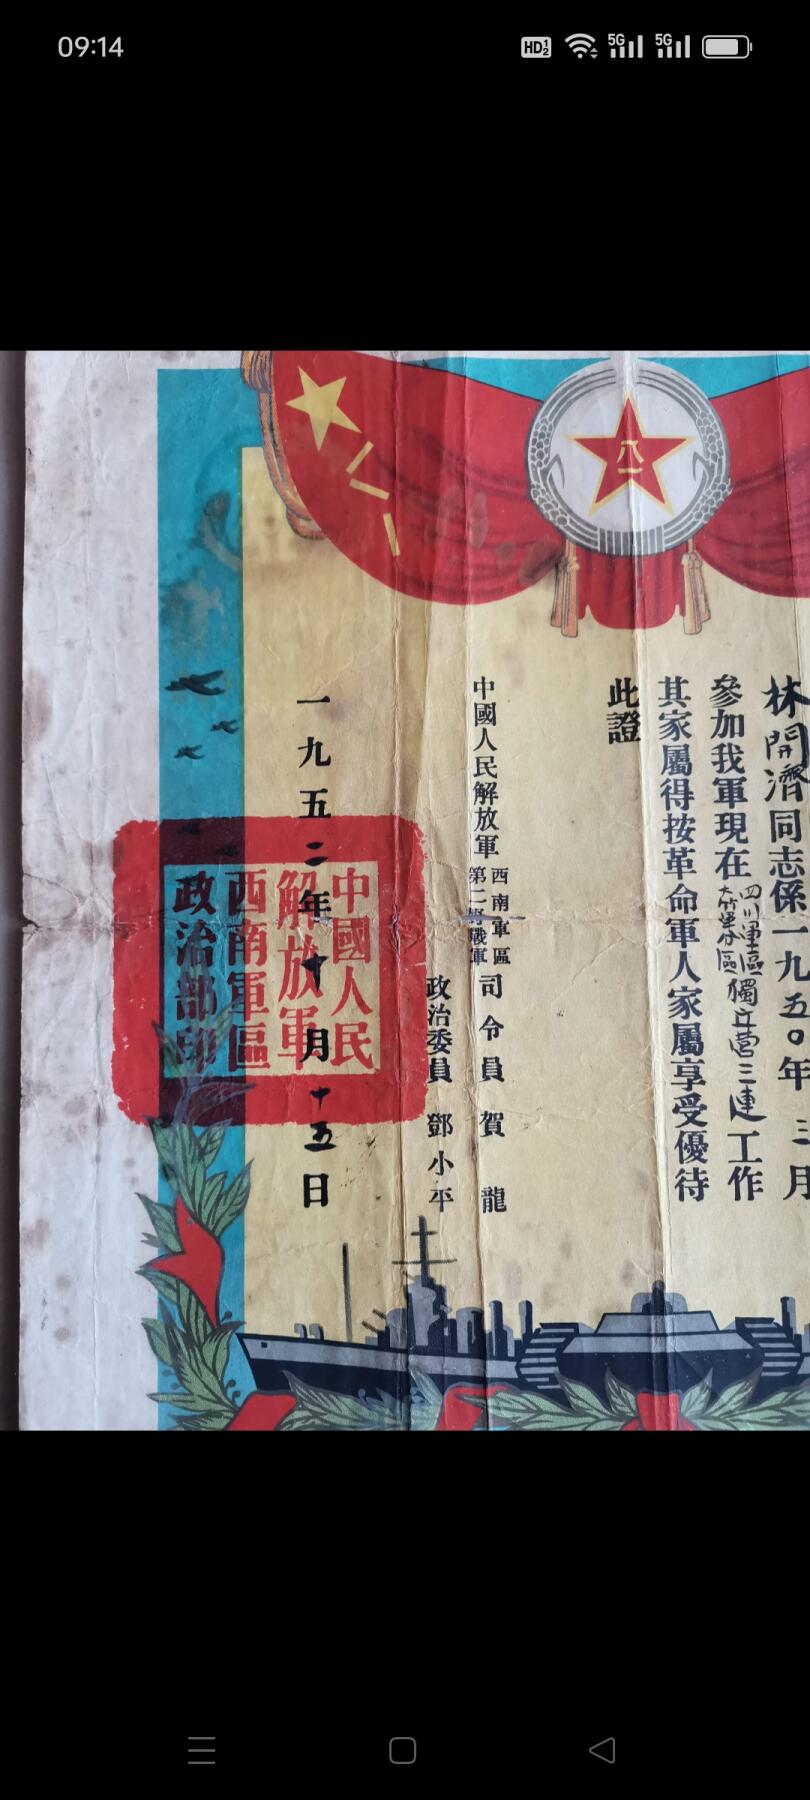 09:14
HD 1 2
5G
5G
八一
林開濟同志係一九五〇年三月
參加我軍現在四川軍區大竹軍分區獨立营三連工作
其家屬得按革命軍人家屬享受優待
此證
中國人民解放軍 西南軍區 第二野戰軍
司令員 賀龍
政治委員 鄧小平
一九五二年十月十五日
中國人民
解放軍
西南軍區
政治部印